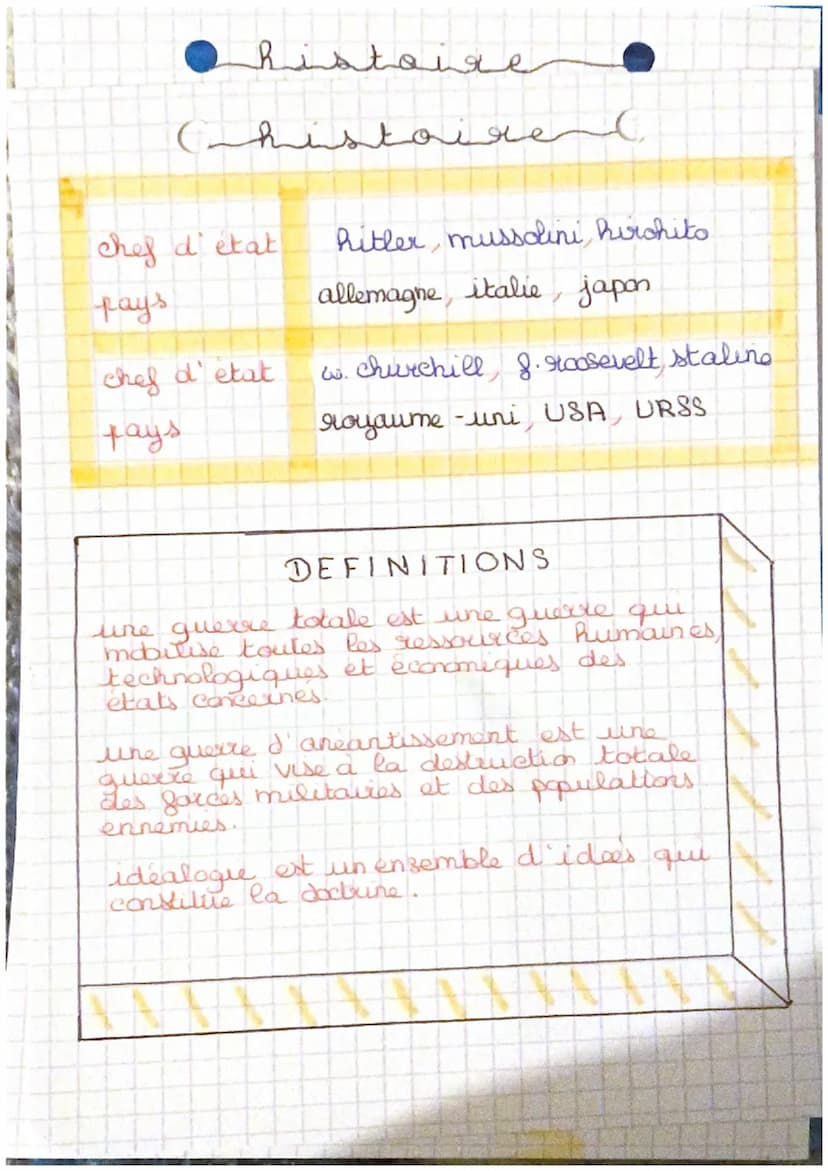 histoire
histoire
chef d'état
pays
hitler, mussolini, hirohito
allemagne, italie, japon
chef d'état
pays
w. churchill, f. roosevelt, staline
royaume-uni, USA, URSS
DEFINITIONS
une guerre totale est une guerre qui
mobilise toutes les ressources humaines,
technologiques et économiques des
états concernés.
une guerre d'anéantissement est une
guerre qui vise à la destruction totale
des forces militaires et des populations
ennemies.
idéalogie est un ensemble d'ideés qui
constitue la doctrine.